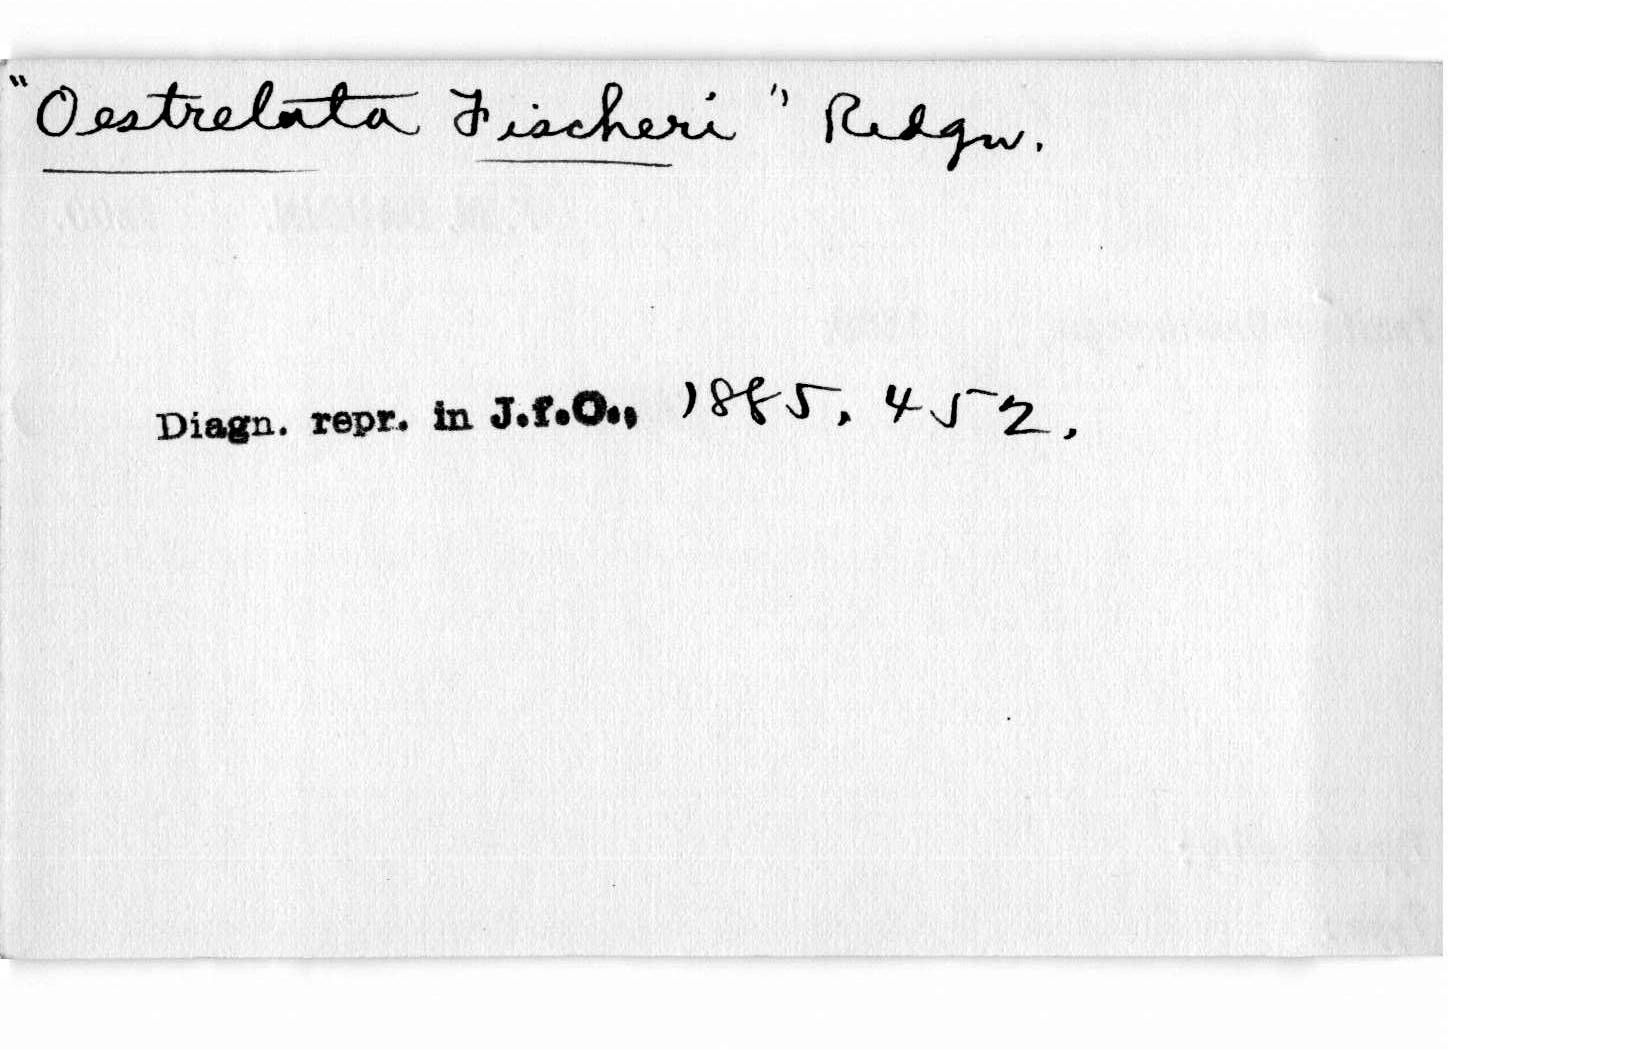 "Oestrelata Fischeri" Ridgw.
Diagn. repr. in J.f.O., 1885, 452.